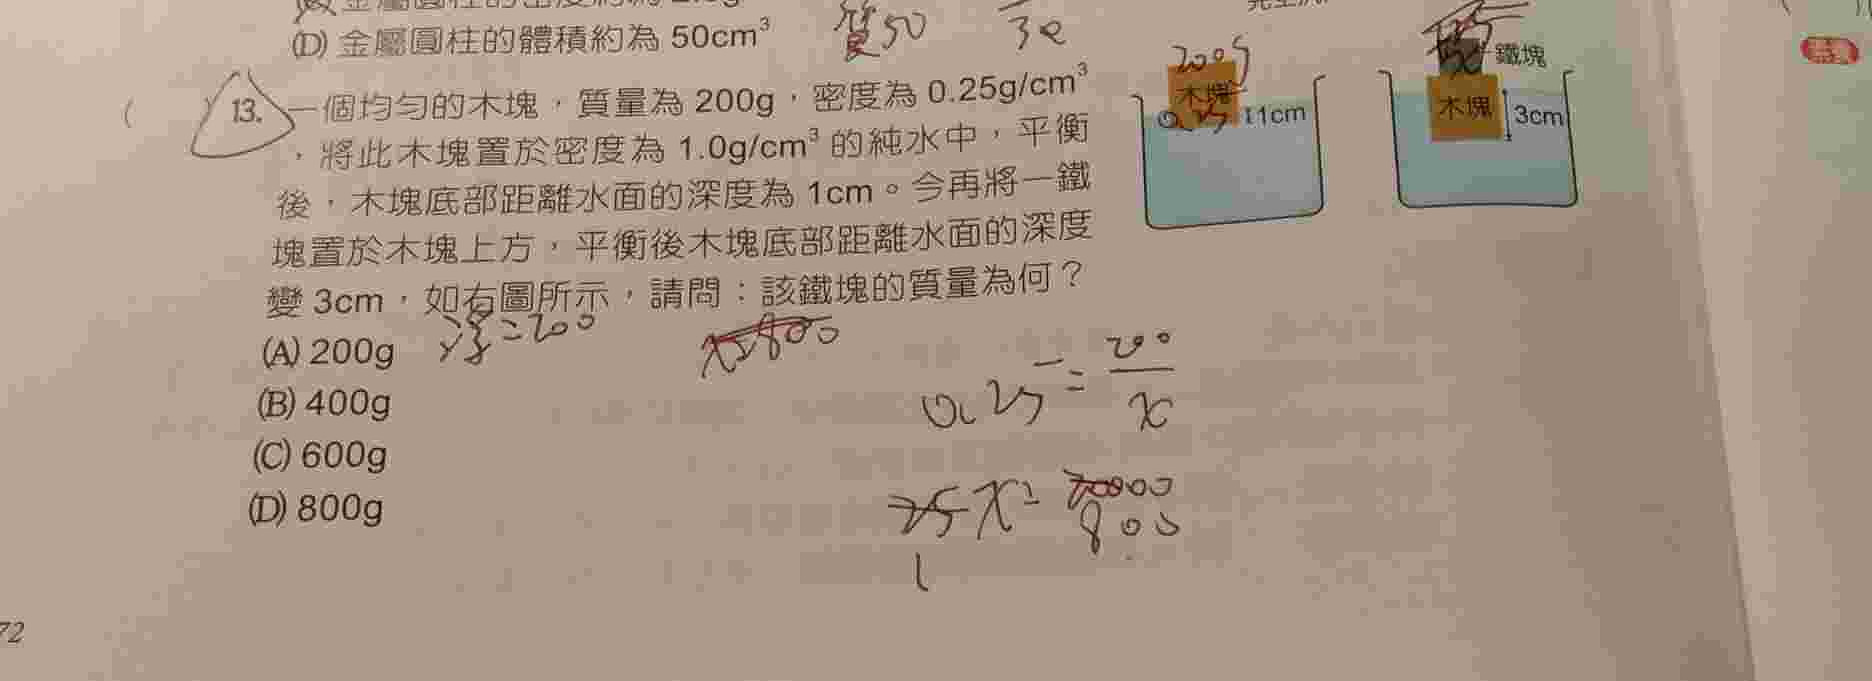 (D) 金屬圓柱的體積約為 50cm³
質50
30
( ) 13. 一個均勻的木塊，質量為 200g，密度為 0.25g/cm³
，將此木塊置於密度為 1.0g/cm³ 的純水中，平衡
後，木塊底部距離水面的深度為 1cm。今再將一鐵
塊置於木塊上方，平衡後木塊底部距離水面的深度
變 3cm，如右圖所示，請問：該鐵塊的質量為何？
(A) 200g
(B) 400g
(C) 600g
(D) 800g
200g
木塊
0.25
1cm
鐵塊
木塊
3cm
浮=200
x=800
0.25=200/x
25x=
800
1
72